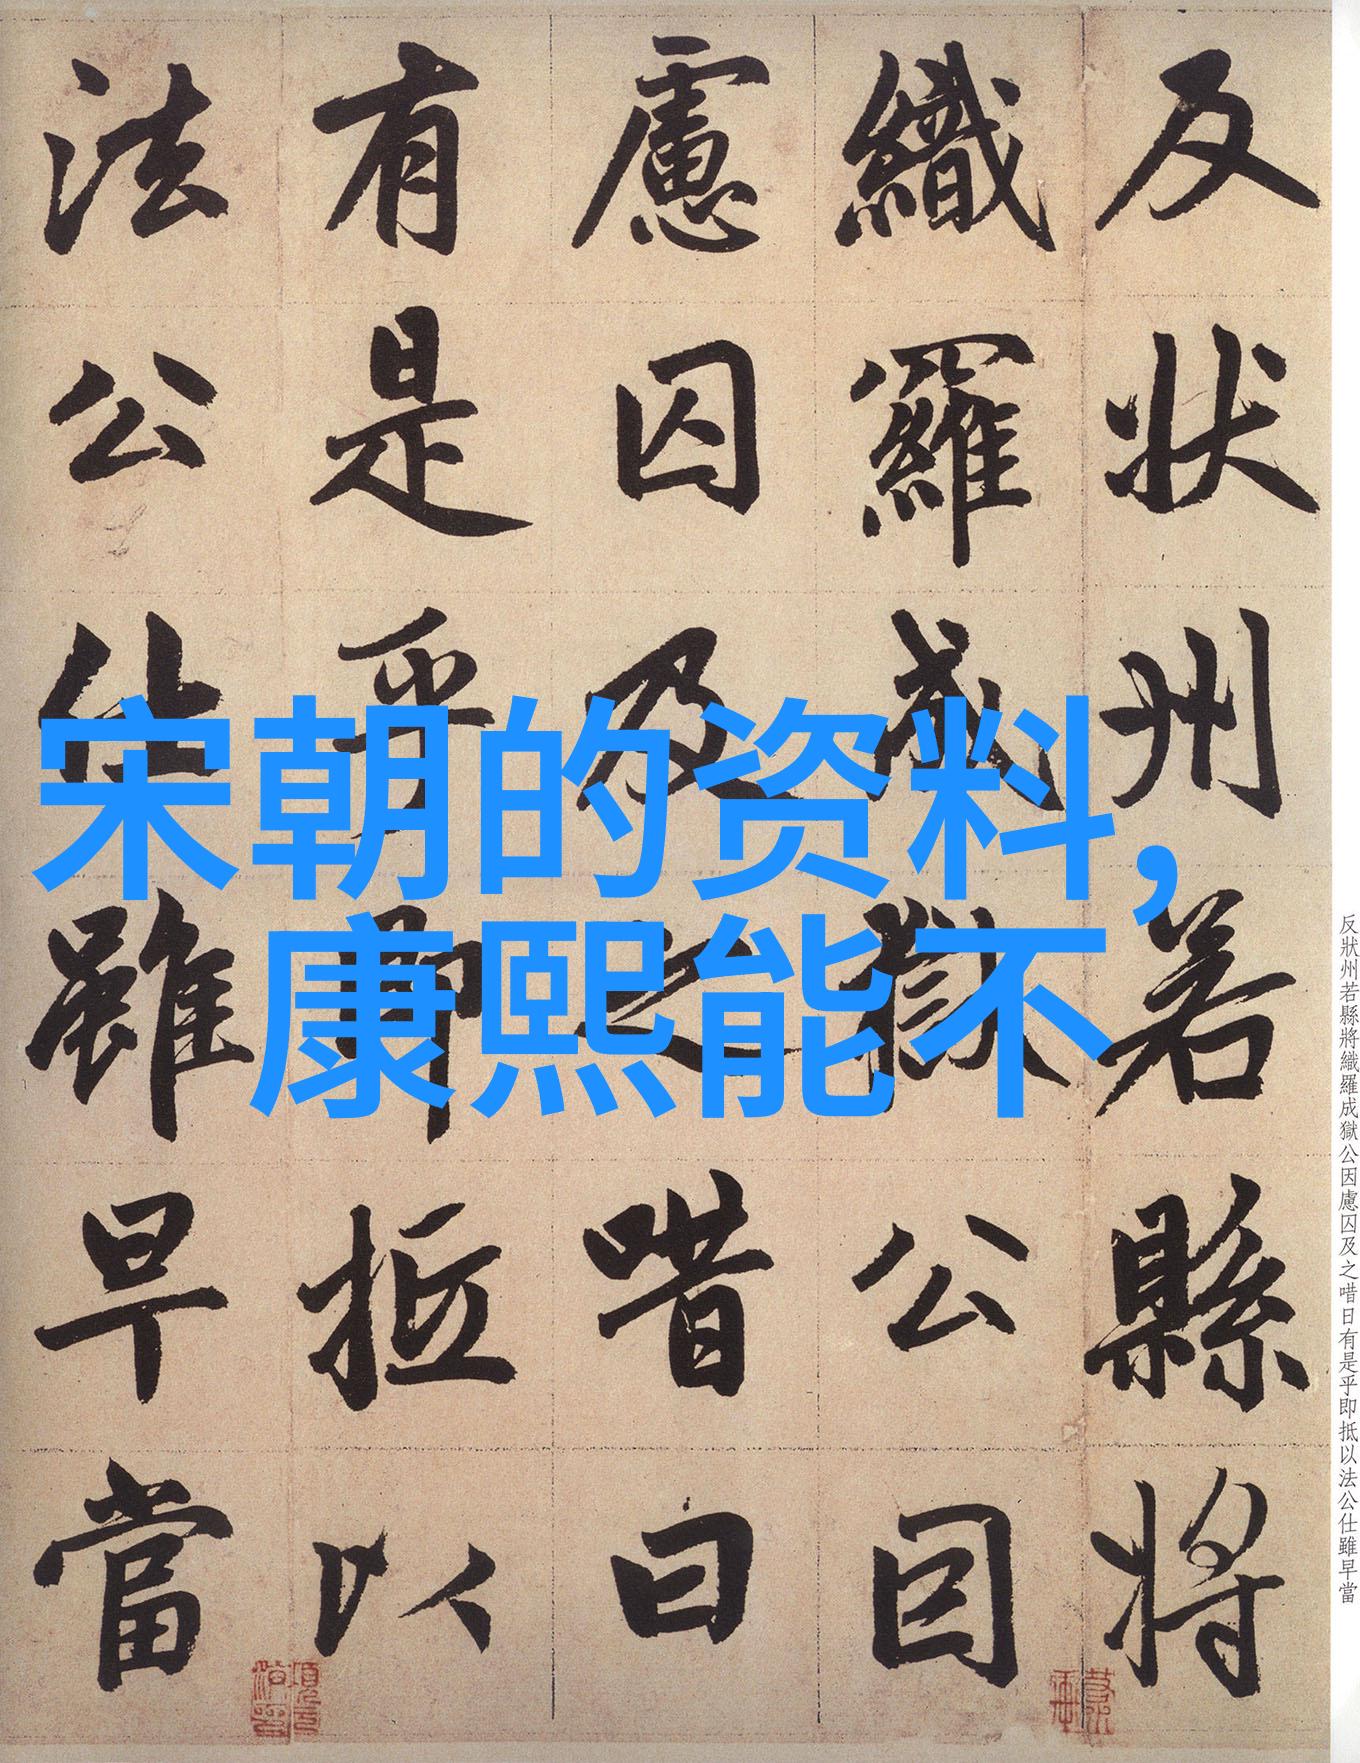 宋朝的资料,
康熙能不
反狀州若縣將
織羅成獄公因
慮囚及之唶曰
有是乎即抵以
法公仕雖早當
反狀州若縣將織羅成獄公因慮囚及之唶曰有是乎即抵以法公仕雖早當